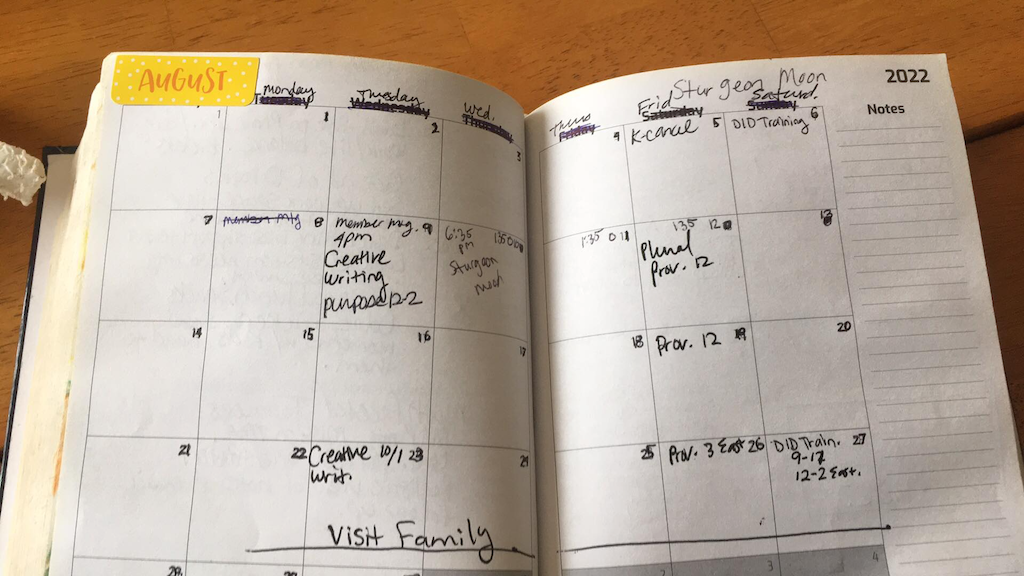 AUGUST
Sturgeon Moon
2022
monday
Tuesday
Tuesday
Wednesday
Wed.
Thursday
Thurs
Friday
Frid
Saturday
Saturd.
Sunday
Notes
1
1
2
3
4
K-cancel 5
DID Training 6
7
member Mtg 8
member mtg. 9
4pm
Creative
writing
purpose 12-2
6:35
pm
Sturgeon
1:35
11
1:35 12
Plural
Prov. 12
13
14
15
16
17
18
Prov. 12 19
20
21
22
Creative 10/1 23
writ.
24
25
Prov. 3 East 26
DID Train. 27
9-12
12-2 East.
Visit Family
28
29
2
3
4